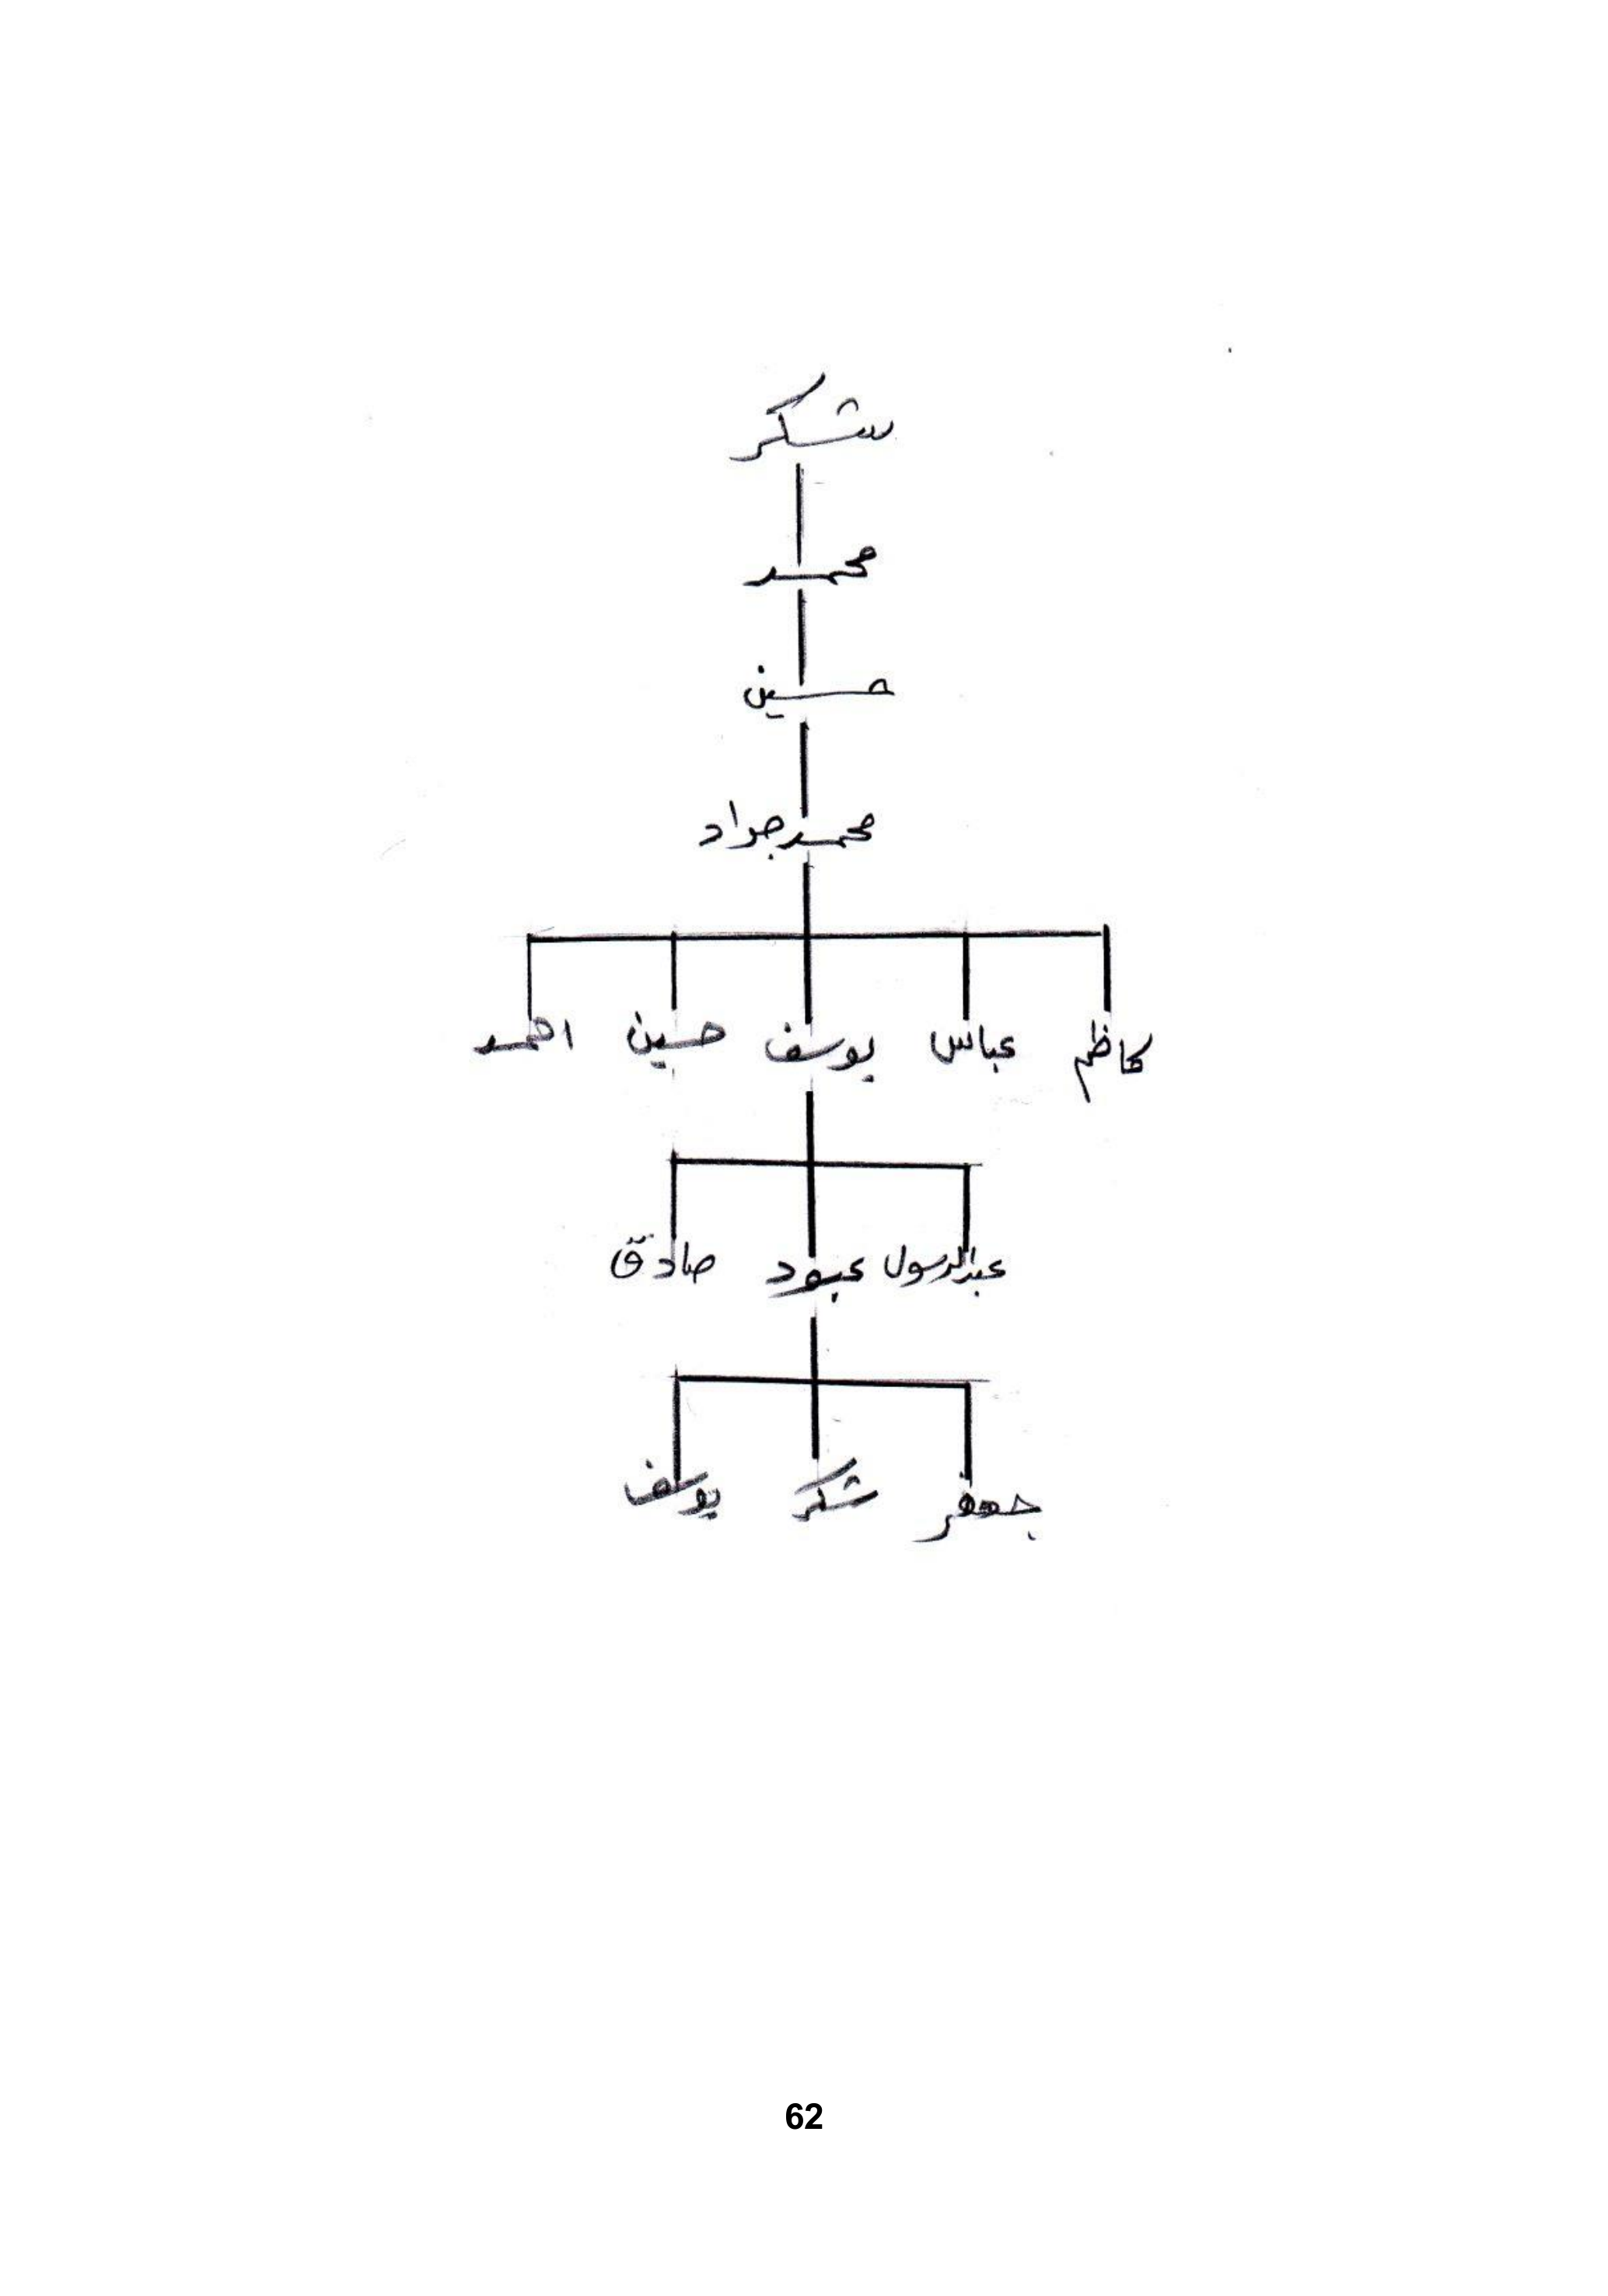 شكر
محمد
حسين
محمد جواد
كاظم عباس يوسف حسين احمد
عبدالرسول عبود صادق
جعفر شكر يوسف
62